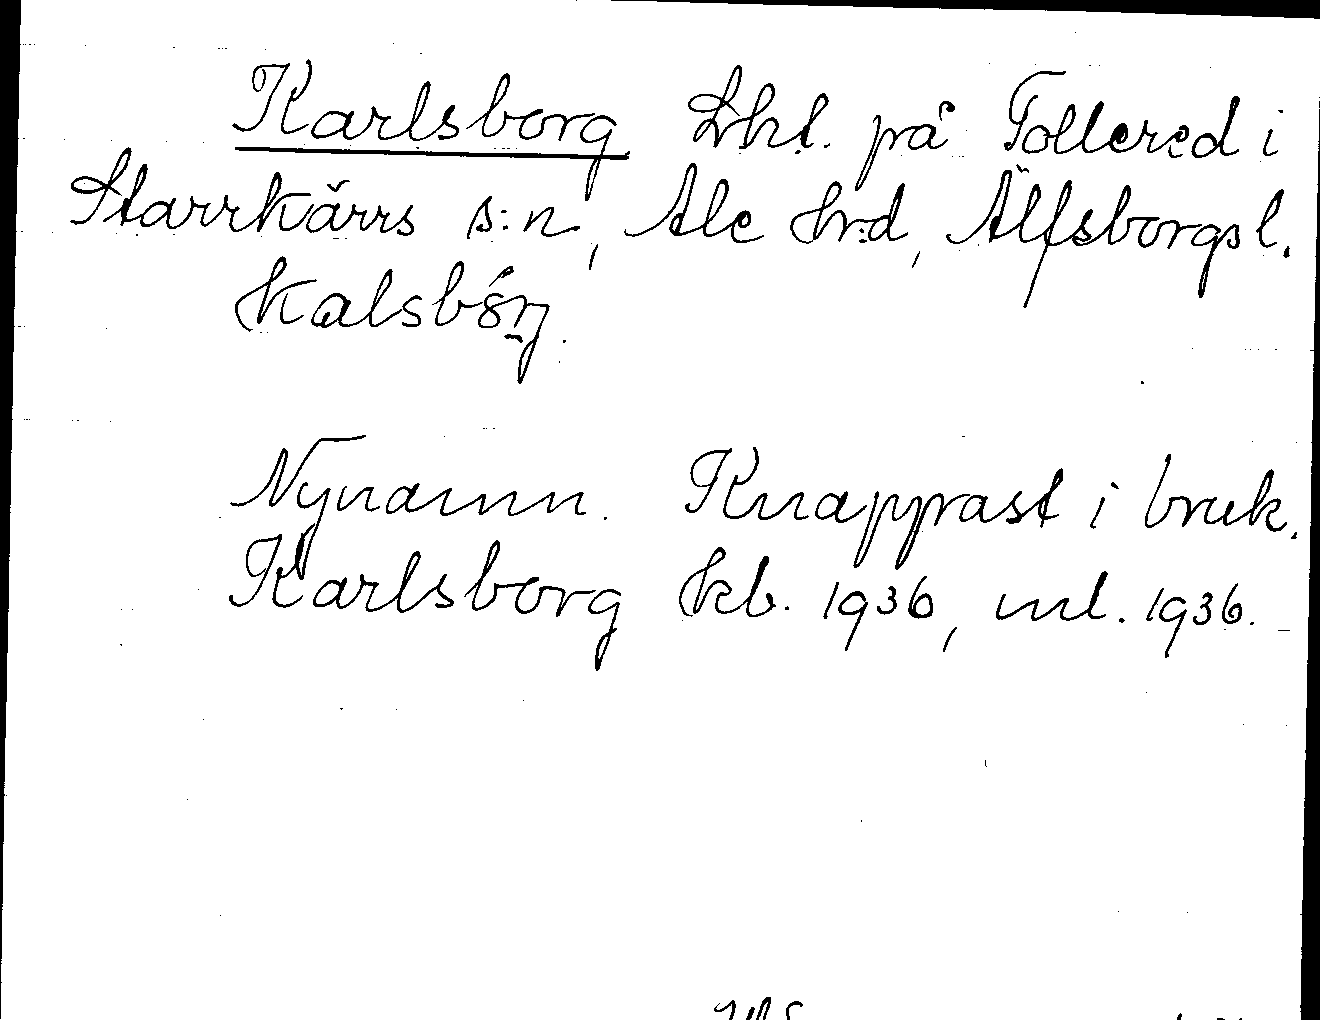 Karlsborg Lht. på Tollered i
Starrkärrs s:n, Ale hrd, Älfsborgs l.
Nynamn. Knapprast i bruk.
Karlsborg kb. 1936, ml. 1936.